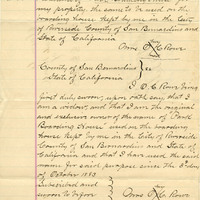 my property, the same to be used in the
boarding House kept by me in the City
of Riverside County of San Bernardino and
State of California
Mrs O. C. Rowe
County of San Bernardino
State of California
I O. C. Rowe being
first duly sworn upon oath say that I
am a widow and that I am the original
and exclusive owner of the name of "Park
Boarding House" used on the boarding
house kept by me in the City of Riverside
County of San Bernardino and State of
California and that I have used the said
name for said purpose since the 1st day
of October 1883
Subscribed and
sworn to before
Mrs O. C. Rowe